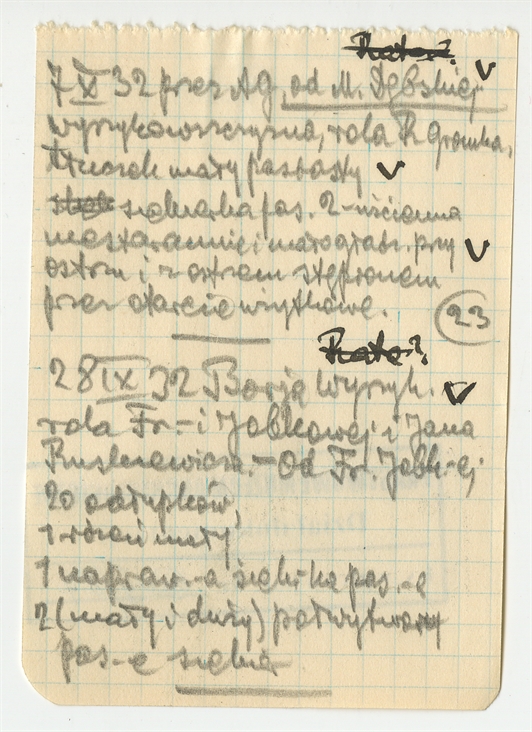 7 X 32 przez AG, od M. Dębskiej
Wyrzykowszczyzna, rola R. Gromka,
tłuczek mały pasiasty
siekierka pas. 2-uścienna
niestarannie i małogładz. przy
ostrzu i z ostrzem stępionem
przez otarcie użytkowe.
23
28 IX 32 Borja Wyrzyk.
rola Fr.-i Jabkowej i Jana
Ruszkiewicza.- Od Fr. Jabk-ej
20 odłupków,
1 rdzeń mały
1 napraw.-a siek-ka pas.-a
2 (mały i duży) półwytwory
pas-e siekier